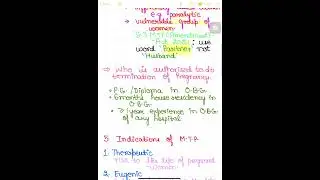 e.g. paralytic
→ vulnerable group of
women
word "Partner" not
"Husband"
→ Who is authorised to do
termination of Pregnancy
→ P.G./Diploma in O.B.G
→ 6 months house residency in
O.B.G.
→ 1 year experience in O.B.G
of any hospital
5. Indications of M.T.P.
1. Therapeutic
risk to the life of pregnant
women
2. Eugenic